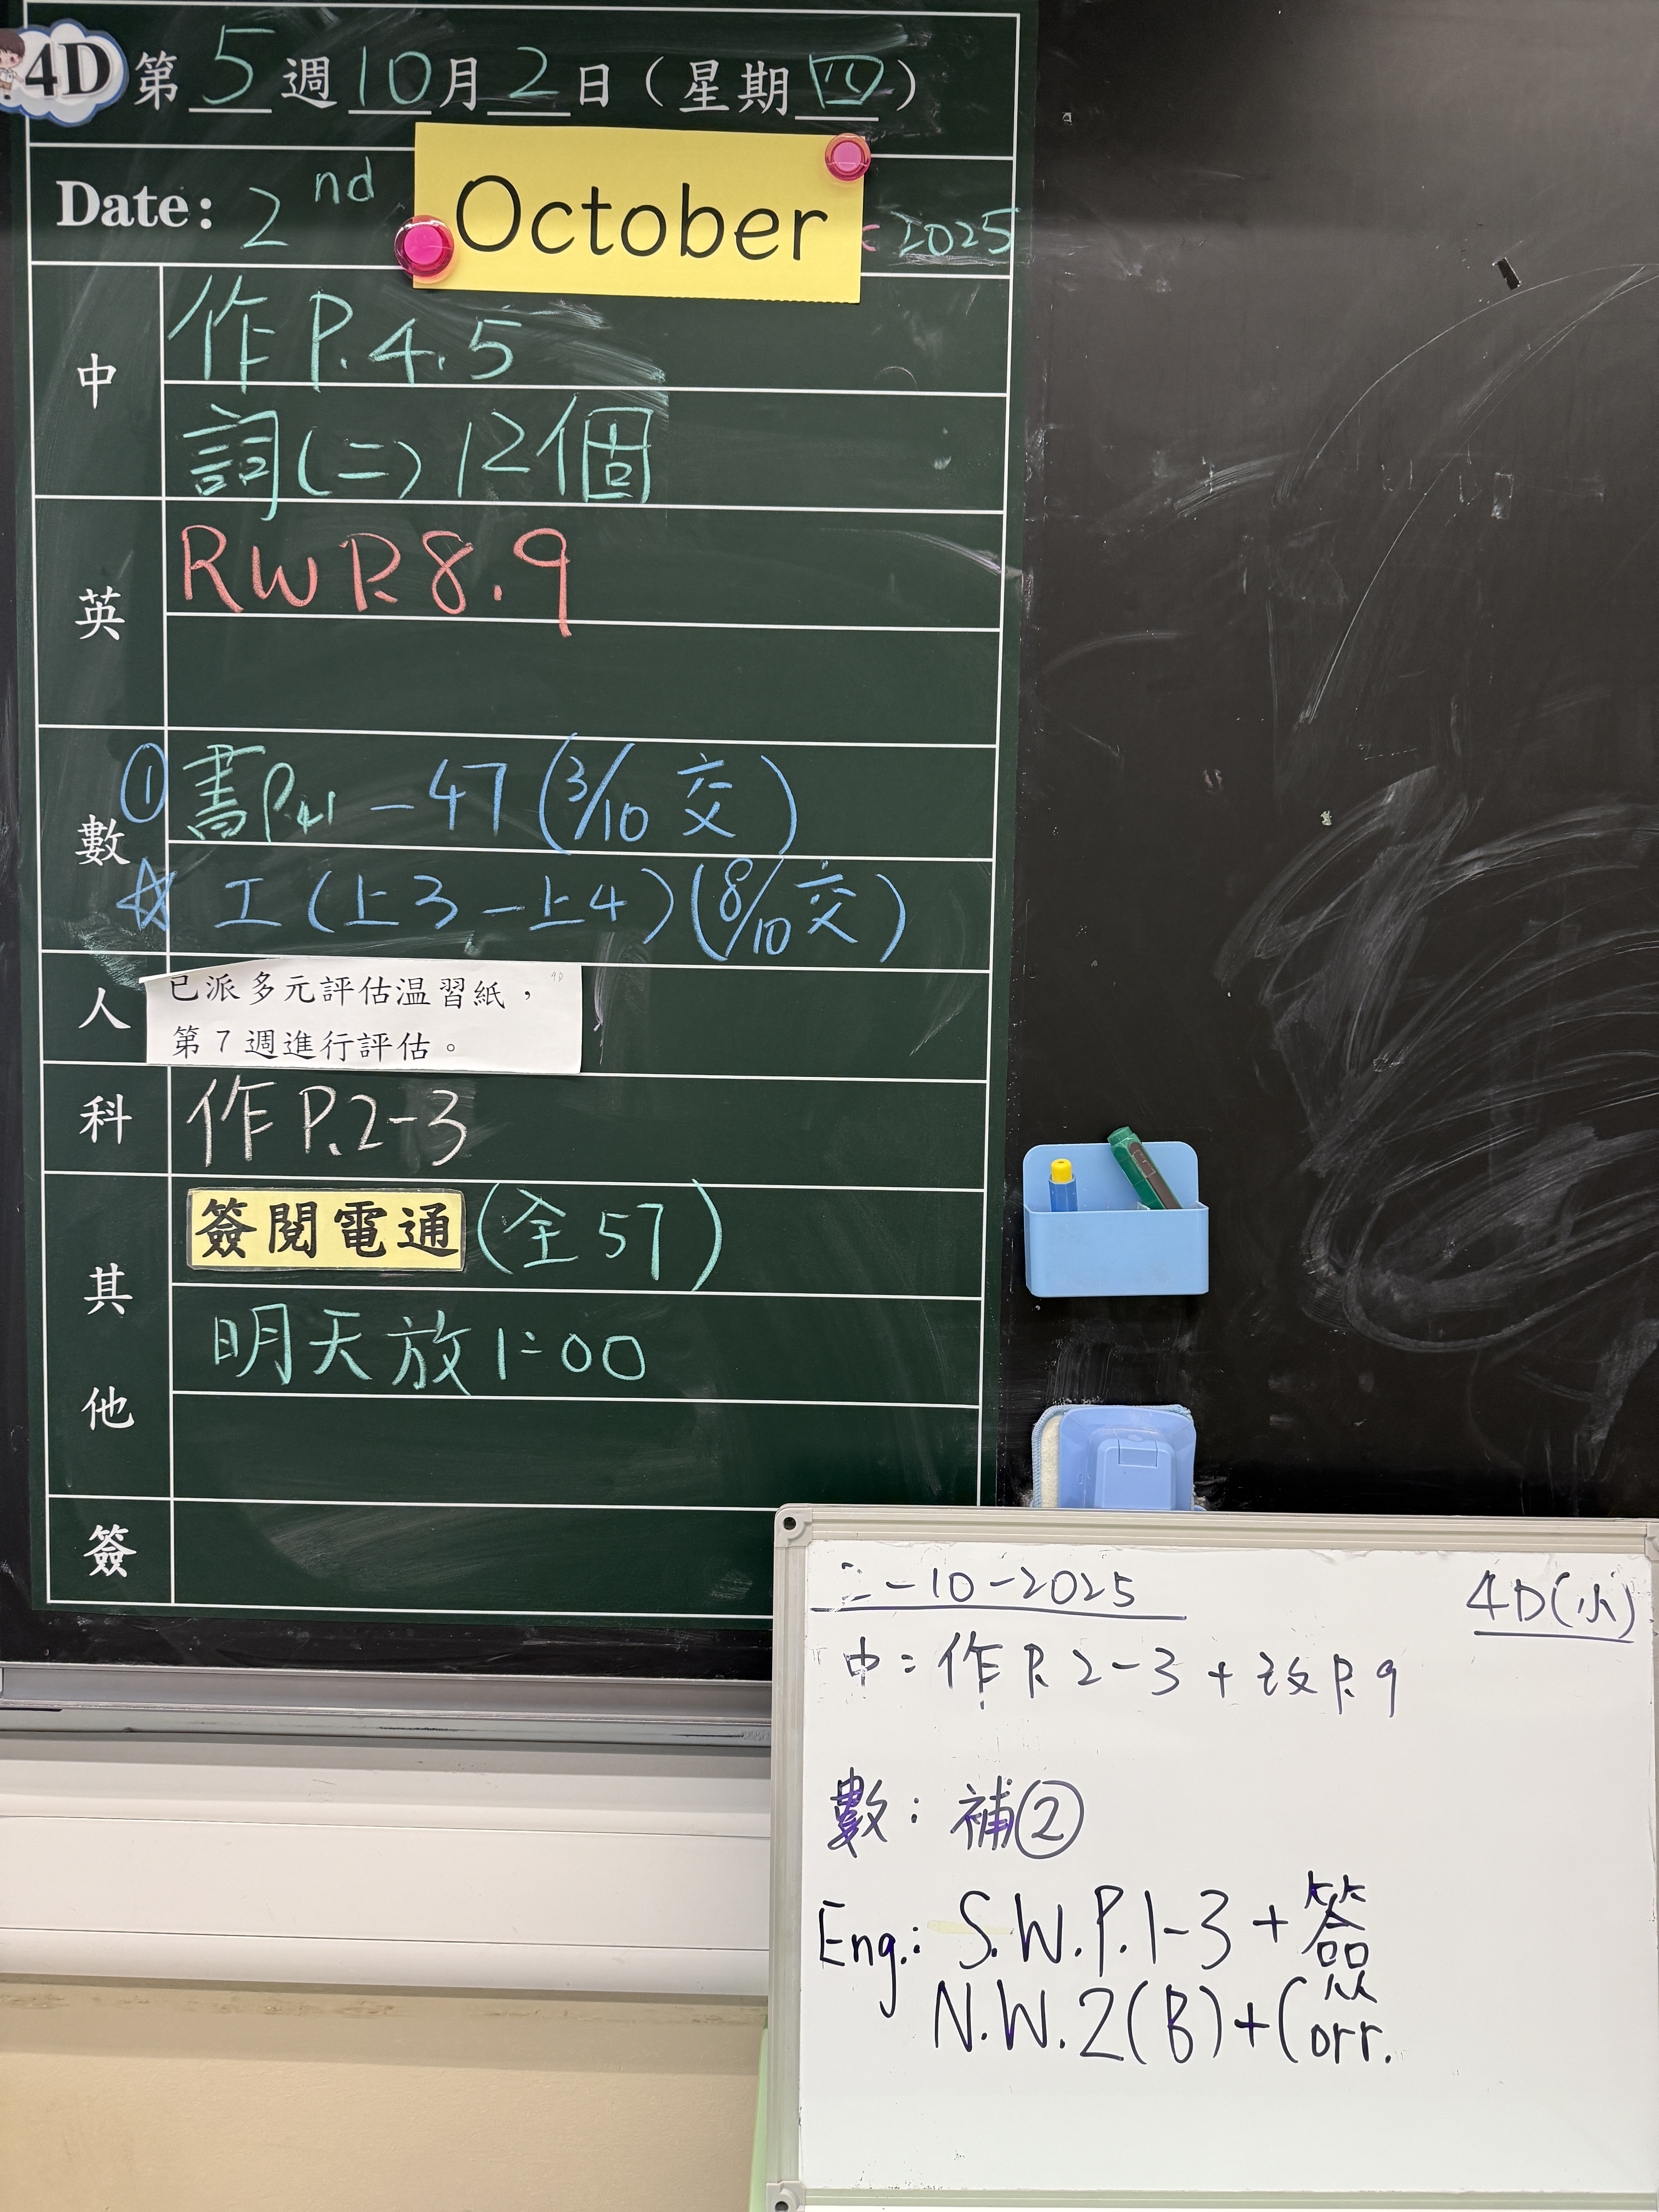 4D 第 5 週 10 月 2 日（星期四）
Date: 2nd October 2025
中
作 P.4.5
詞(二) 12個
英
RW P.8.9
數
① 書P.41 - 47 (3/10 交)
☆ 工 (上3 - 上4) (8/10 交)
人
已派多元評估温習紙，
第 7 週進行評估。
科
作 P.2-3
其他
簽閱電通 (全57)
明天放 1:00
簽
二-10-2025 4D(小)
中: 作 P.2-3 + P.9
數: 補②
Eng.: S.W.P.1-3 + 簽
N.W.2(B)+Corr.